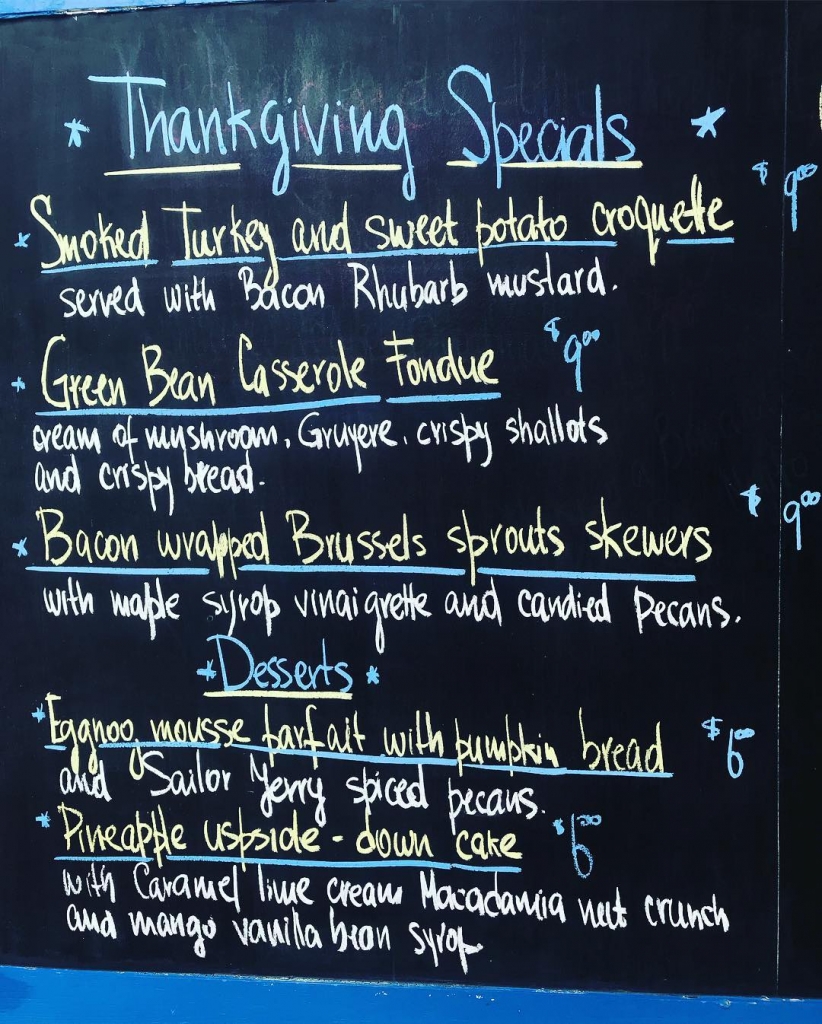 * Thankgiving Specials *
* Smoked Turkey and sweet potato croquette $9.00
served with Bacon Rhubarb mustard.
* Green Bean Casserole Fondue $9.00
cream of myshroom, Gruyere, crispy shallots
and crispy bread.
* Bacon wrapped Brussels sprouts skewers $9.00
with maple syrop vinaigrette and candied pecans.
* Desserts *
* Eggnog mousse parfait with pumpkin bread $6.00
and Sailor Jerry spiced pecans.
* Pineapple uspside-down cake $6.00
with Caramel lime cream Macadamia nut crunch
and mango vanilla bean syrop